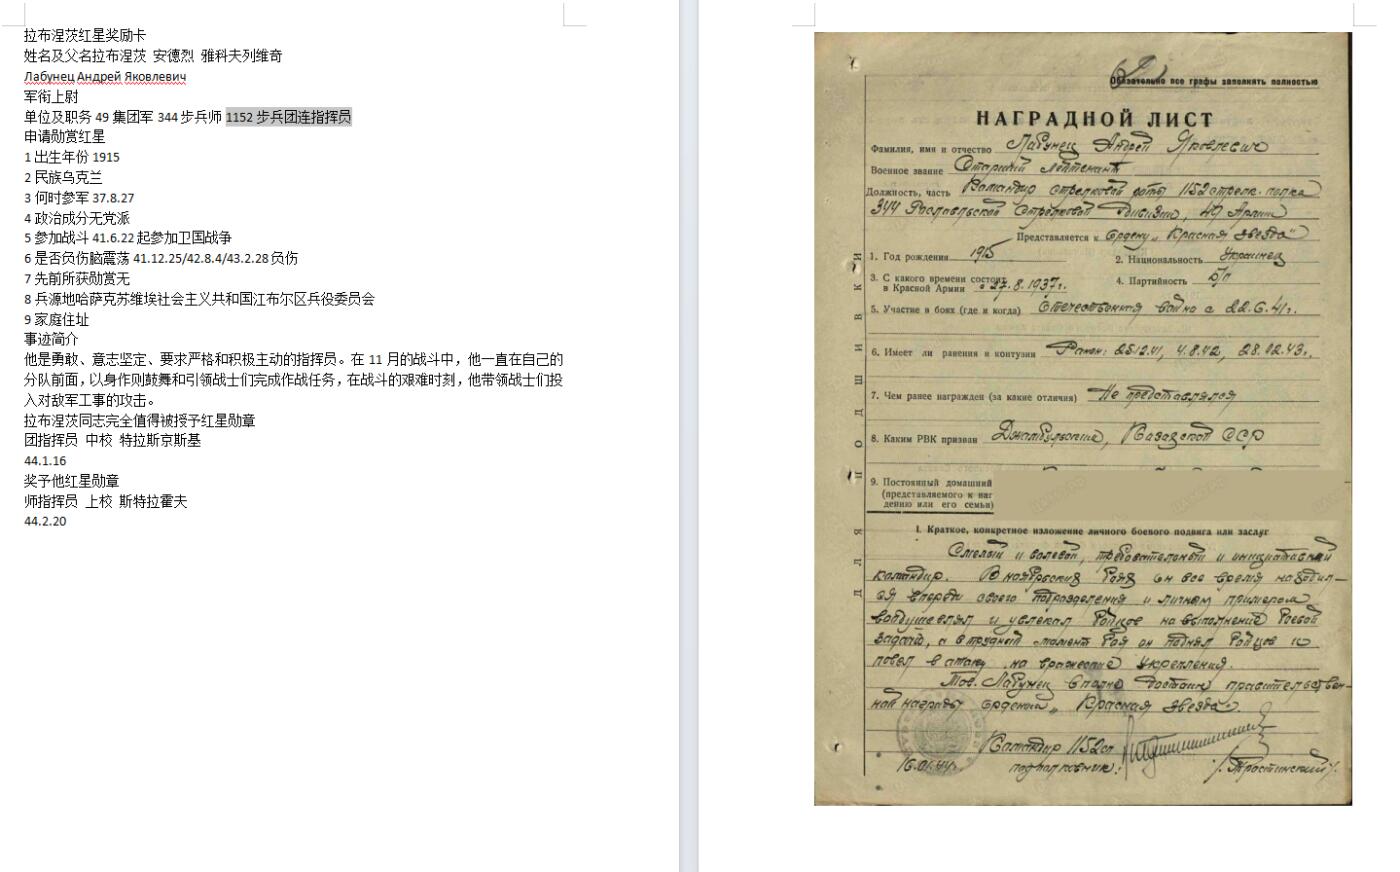 拉布涅茨红星奖励卡
姓名及父名拉布涅茨 安德烈 雅科夫列维奇
Лабунец Андрей Яковлевич
军衔上尉
单位及职务 49 集团军 344 步兵师 1152 步兵团连指挥员
申请勋赏红星
1 出生年份 1915
2 民族乌克兰
3 何时参军 37.8.27
4 政治成分无党派
5 参加战斗 41.6.22 起参加卫国战争
6 是否负伤脑震荡 41.12.25/42.8.4/43.2.28 负伤
7 先前所获勋赏无
8 兵源地哈萨克苏维埃社会主义共和国江布尔区兵役委员会
9 家庭住址
事迹简介
他是勇敢、意志坚定、要求严格和积极主动的指挥员。在 11 月的战斗中，他一直在自己的
分队前面，以身作则鼓舞和引领战士们完成作战任务，在战斗的艰难时刻，他带领战士们投
入对敌军工事的攻击。
拉布涅茨同志完全值得被授予红星勋章
团指挥员 中校 特拉斯京斯基
44.1.16
奖予他红星勋章
师指挥员 上校 斯特拉霍夫
44.2.20
Обязательно все графы заполнять полностью
НАГРАДНОЙ ЛИСТ
Фамилия, имя и отчество Лабунец Андрей Яковлевич
Военное звание Старший лейтенант
Должность, часть Командир стрелковой роты 1152 стрелк. полка
344 Рославльской Стрелковой Дивизии, 49 Армии
Представляется к Ордену „Красная звезда"
1. Год рождения 1915
2. Национальность Украинец
3. С какого времени состоит
в Красной Армии с 27.8.1937г.
4. Партийность б/п
5. Участие в боях (где и когда) Отечественная война с 22.6.41г.
6. Имеет ли ранения и контузии Ранен: 25.12.41, 4.8.42, 28.02.43г.
7. Чем ранее награжден (за какие отличия) Не представлялся
8. Каким РВК призван Джамбульским, Казахской ССР
9. Постоянный домашний
(представляемого к наг
дению или его семьи)
ДЛЯ ПОДШИВКИ
I. Краткое, конкретное изложение личного боевого подвига или заслуг
Смелый и волевой, требовательный и инициативный
командир. В ноябрьских боях он все время находил-
ся впереди своего подразделения и личным примером
воодушевлял и увлекал бойцов на выполнение боевой
задачи, а в трудный момент боя он поднял бойцов и
повел в атаку на вражеские укрепления.
Тов. Лабунец вполне достоин правительствен-
ной награды орденом „Красная звезда".
Командир 1152 сп
16.01.44г. подполковник: /Трастинский/.